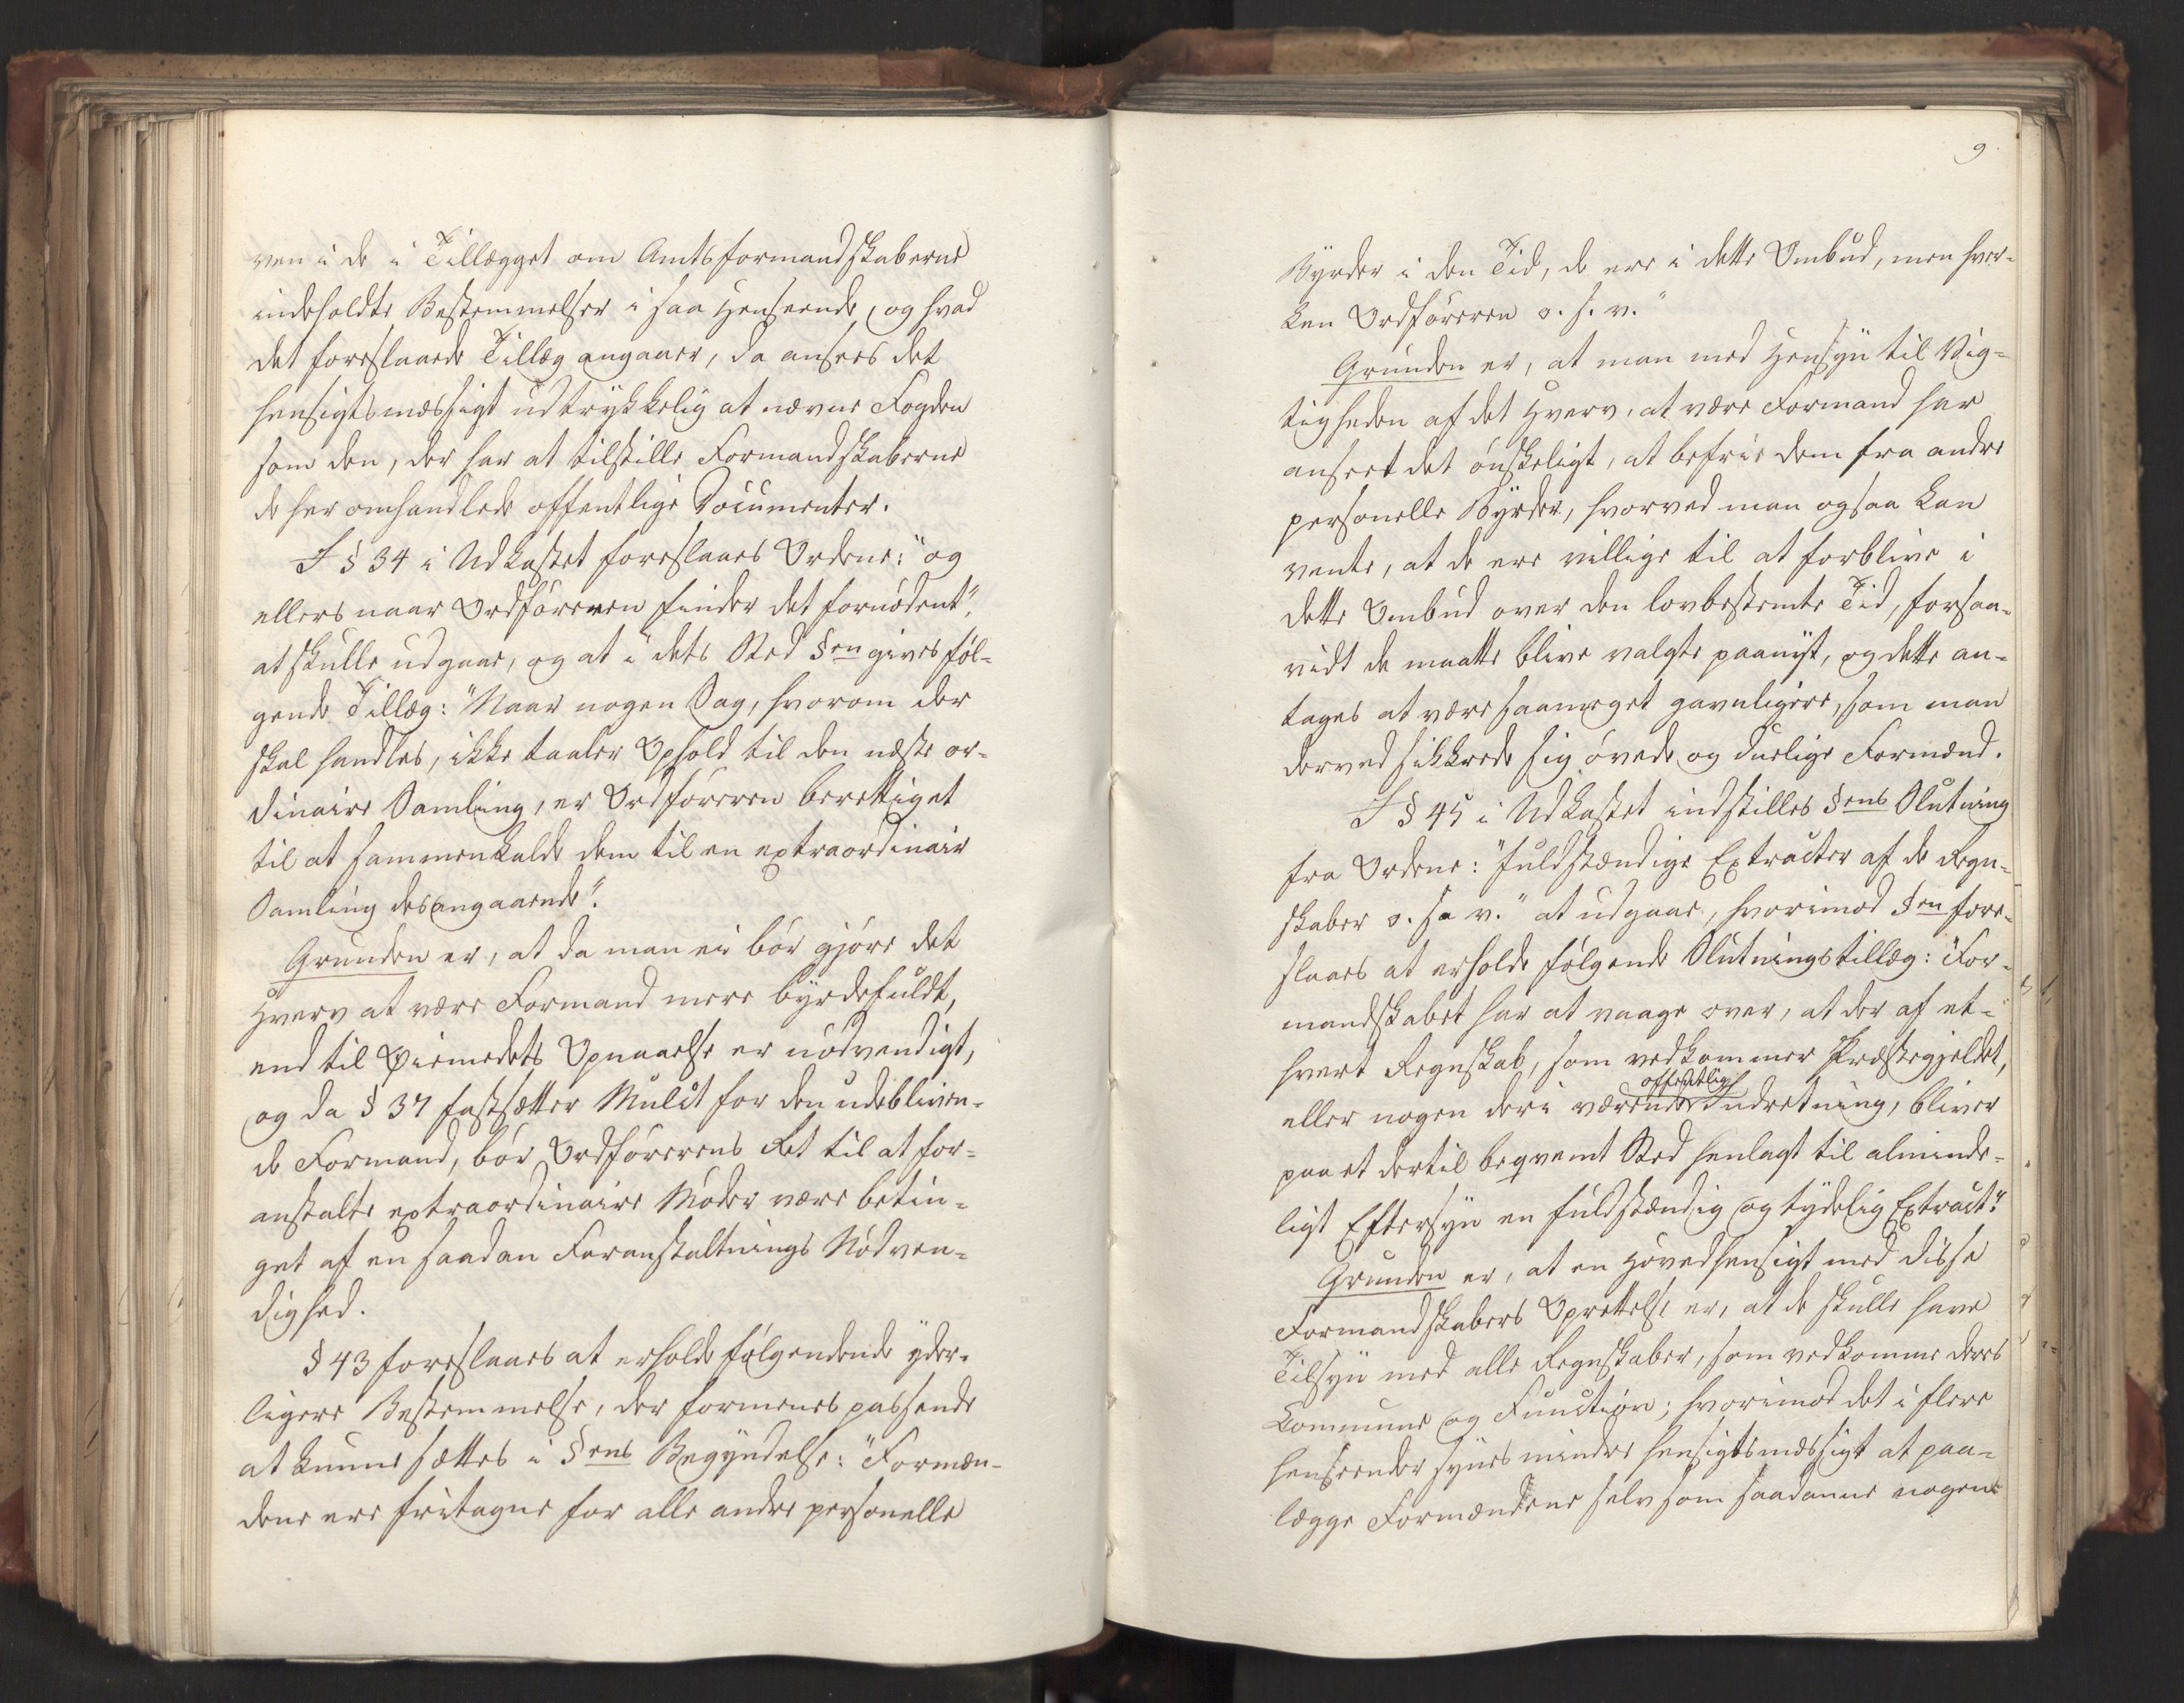 ven i de i Tillægget om Amtsformandskaberne
indeholdte Bestemmelser i saa Henseende, og hvad
det foreslaaede Tillæg angaaer, da ansees det
hensigtsmæssigt udtrykkelig at nævne Fogden
som den, der har at tilstille Formandskaberne
de her omhandlede offentlige Documenter.
I § 34 i Udkastet foreslaaes Ordene: "og
ellers naar Ordföreren finder det fornödent",
at skulle udgaae, og at i dets Sted §en gives föl-
gende Tillæg: "Naar nogen Sag, hvorom der
skal handles, ikke taaler Ophold til den næste or-
dinaire Samling, er Ordföreren berettiget
til at sammenkalde dem til en extraordinair
Samling desangaaende".
Grunden er, at da man ei bör gjöre det
Hverv at være Formand mere byrdefuldt,
end til Öiemedets Opnaaelse er nödvendigt,
og da § 37 fastsætter Mulct for den udebliven-
de Formand, bör Ordförerens Ret til at for-
anstalte extraordinaire Möder være betin-
get af en saadan Foranstaltnings Nödven-
dighed.
§ 43 foreslaaes at erholde fölgendende yder-
ligere Bestemmelse, der formenes passende
at kunne sættes i §ens Begyndelse: "Formæn-
dene ere fritagne for alle andre personelle
9
Byrder i den Tid, de ere i dette Ombud, men hver-
ken Ordföreren o. s. v."
Grunden er, at man med Hensyn til Vig-
tigheden af det Hverv, at være Formand har
anseet det önskeligt, at befrie dem fra andre
personelle Byrder, hvorved man ogsaa kan
vente, at de ere villige til at forblive i
dette Ombud over den lovbestemte Tid, forsaa-
vidt de maatte blive valgte paanyt, og dette an-
tages at være saameget gavnligere, som man
derved sikkrede sig övede og duelige Formænd.
I § 45 i Udkastet indstilles §ens Slutning
fra Ordene: "fuldstændige Extracter af de Regn-
skaber o. s. v." at udgaae, hvorimod §en fore-
slaaes at erholde fölgende Slutningstillæg: "For-
mandskabet har at vaage over, at der af et-
hvert Regnskab, som vedkommer Præstegjeldet,
offentlig
eller nogen deri værende Indretning, bliver
paa et dertil beqvemt Sted henlagt til alminde-
ligt Eftersyn en fuldstændig og tydelig Extract".
Grunden er, at en Hovedhensigt med disse
Formandskabers Oprettelse er, at de skulle have
Tilsyn med alle Regnskaber, som vedkomme deres
Commune og Function; hvorimod det i flere
Henseender synes mindre hensigtsmæssigt at paa-
lægge Formændene selv som saadanne nogen